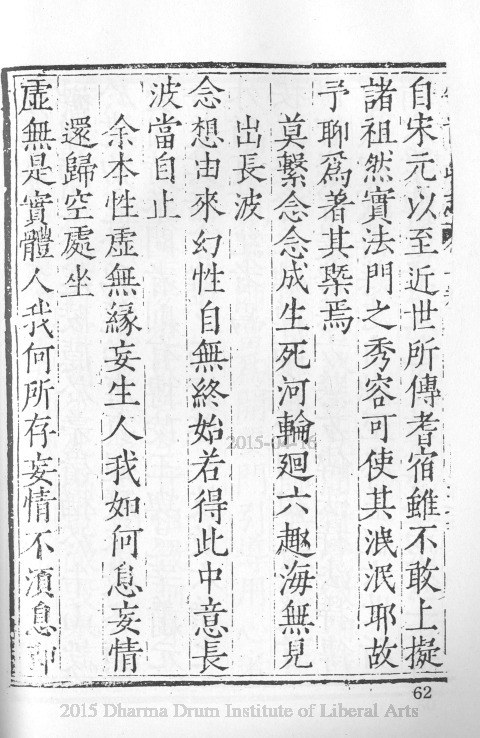 自宋元以至近世所傳耆宿雖不敢上擬
諸祖然實法門之秀容可使其泯泯耶故
予聊爲著其槩焉
莫繫念念成生死河輪迴六趣海無見
出長波
念想由來幻性自無終始若得此中意長
波當自止
余本性虛無緣妄生人我如何息妄情
還歸空處坐
虛無是實體人我何所存妄情不須息即
62
2015 Dharma Drum Institute of Liberal Arts